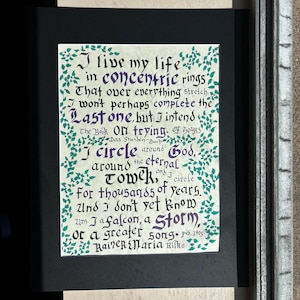 I live my life
in concentric rings
That over everything stretch.
I won't perhaps complete the
Last one, but I intend
on trying.
The Book of Hours
Das Stunden-Buch
I circle around God,
around the eternal
Tower, and I circle
for thousands of years.
And I don't yet know
am I a falcon, a Storm,
or a greater song.
Rainer Maria Rilke